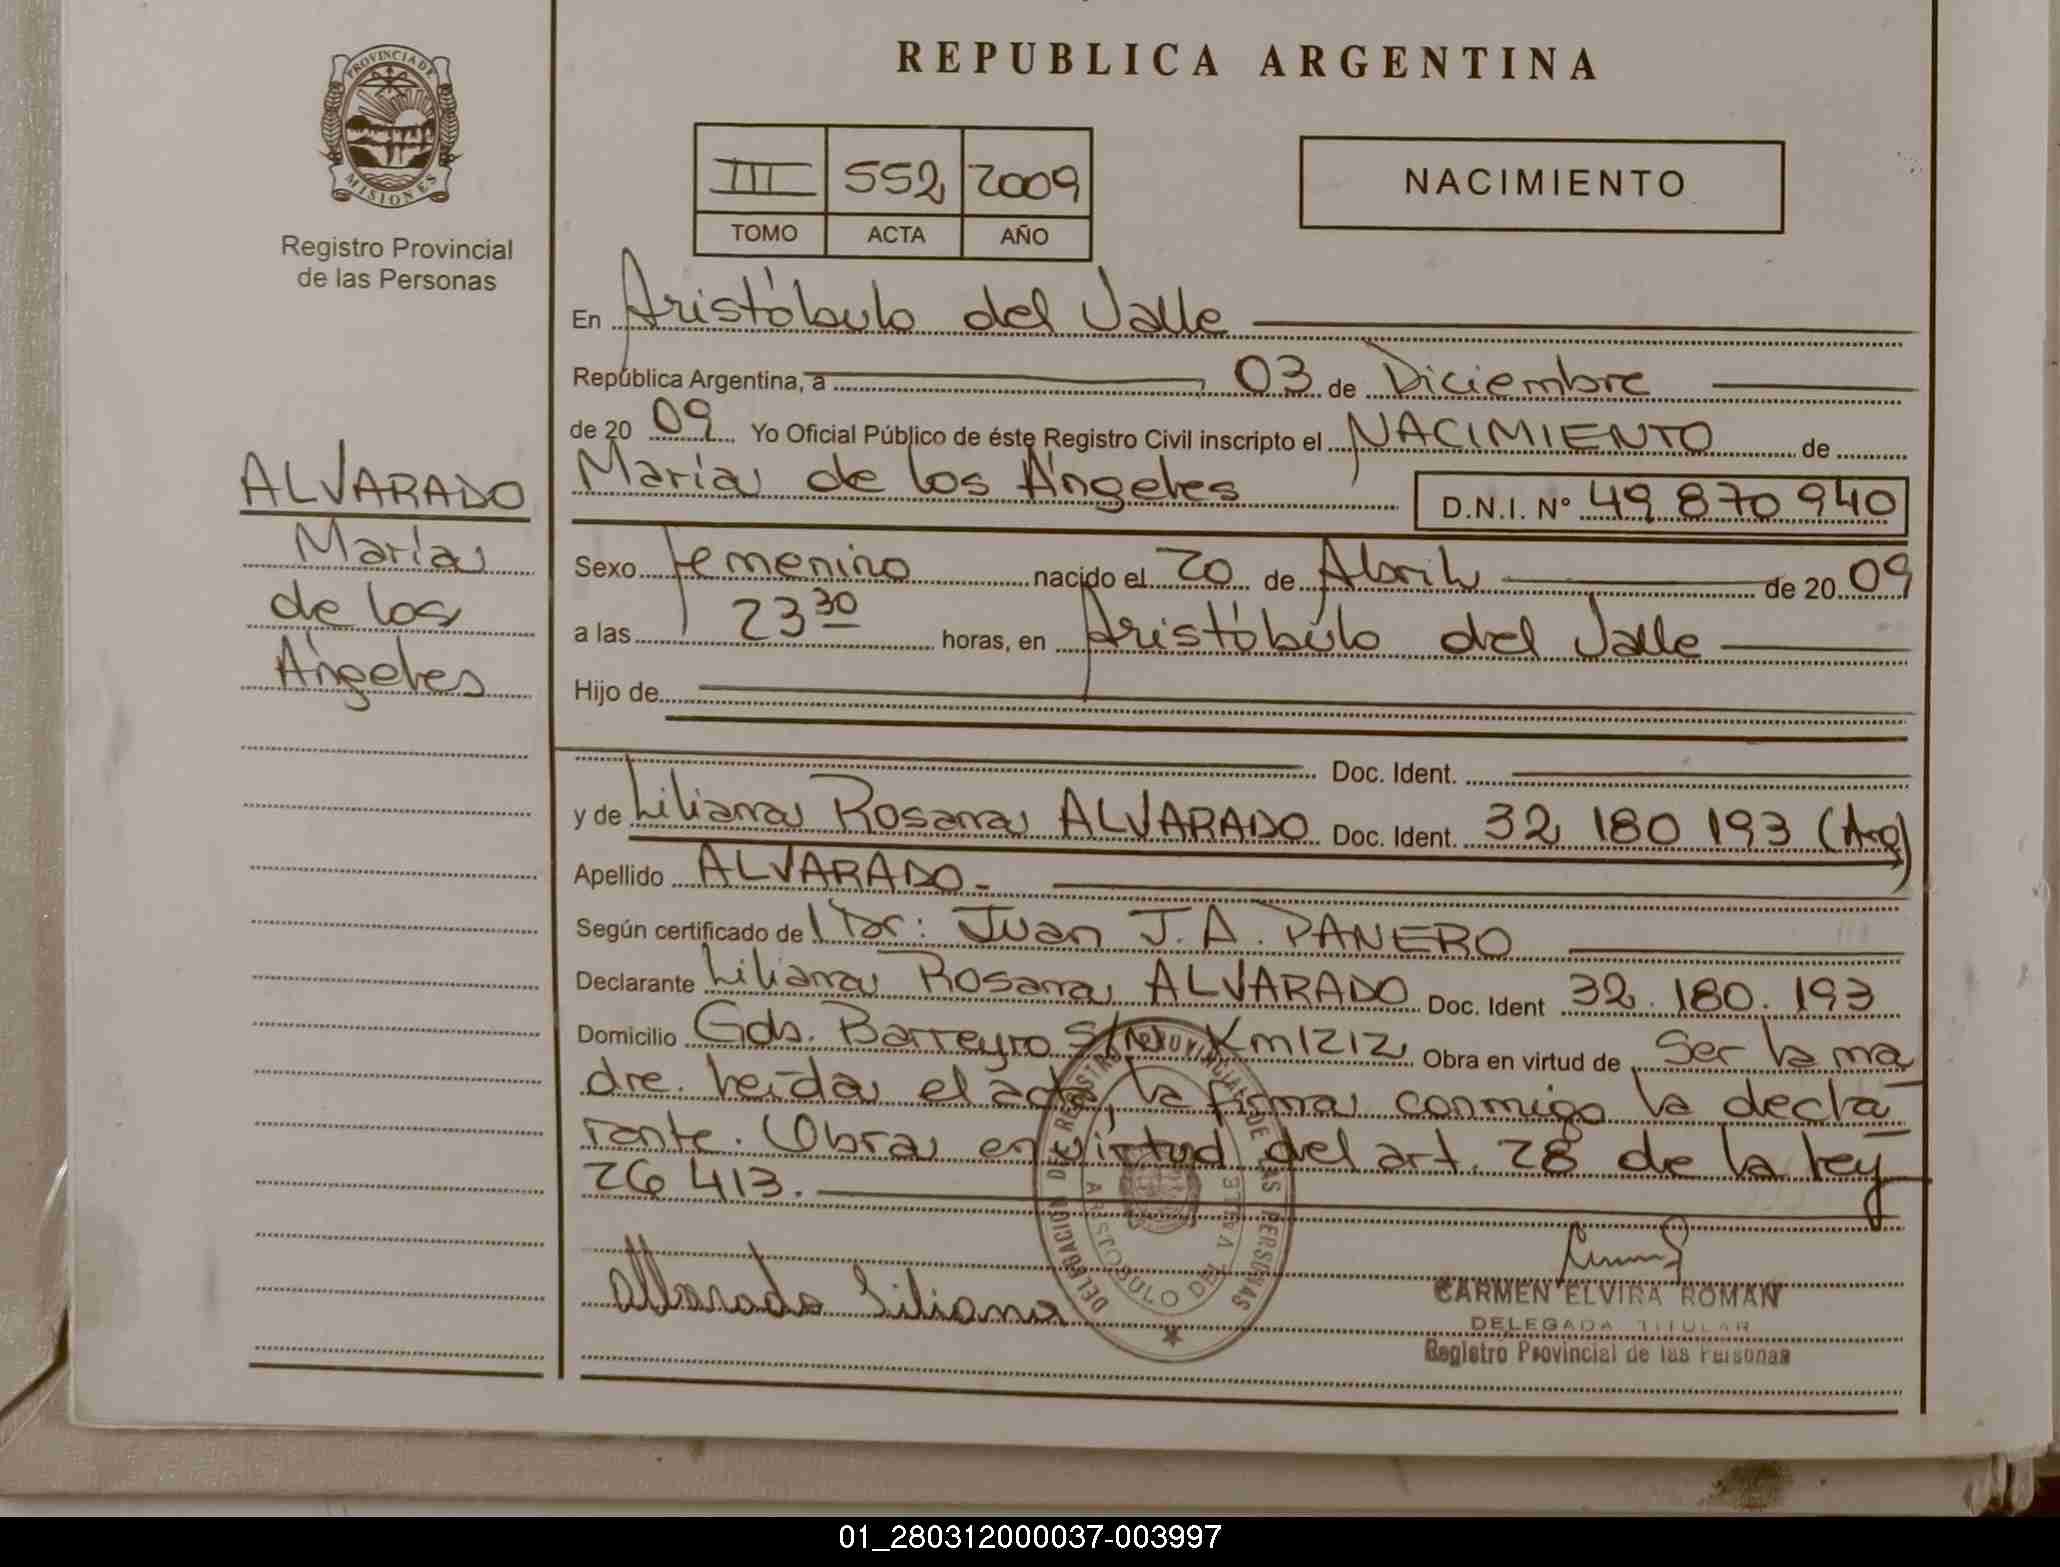 PROVINCIA DE
MISIONES
Registro Provincial
de las Personas
REPUBLICA ARGENTINA
III 552 2009
TOMO ACTA AÑO
NACIMIENTO
En Aristóbulo del Valle
República Argentina, a 03 de Diciembre
de 2009 Yo Oficial Público de éste Registro Civil inscripto el NACIMIENTO de
María de los Ángeles D.N.I. Nº 49 870 940
ALVARADO
María
de los
Ángeles
Sexo femenino nacido el 20 de Abril de 2009
a las 23 30 horas, en Aristóbulo del Valle
Hijo de
Doc. Ident.
y de Liliana Rosana ALVARADO Doc. Ident. 32 180 193 (Arg)
Apellido ALVARADO.-
Según certificado de Dr: Juan J.A. PANERO
Declarante Liliana Rosana ALVARADO Doc. Ident 32.180.193
Domicilio Gdor. Barreyro S/N Km 1212 Obra en virtud de Ser la ma
dre. Leída el acta, la firma conmigo la decla
rante. Obra en virtud del art. 28 de la ley
26 413.
DELEGACION DEL REGISTRO PROVINCIAL DE LAS PERSONAS
ARISTOBULO DEL VALLE
Alvarado Liliana
CARMEN ELVIRA ROMAN
DELEGADA TITULAR
Registro Provincial de las Personas
01_280312000037-003997